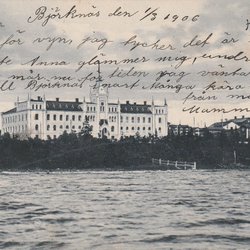 Björknäs den 1/3 1906
för vyn, jag tycker det är
Anna glömmer mig, undr
mår nu för tiden jag vänta
ll Björknäs snart Många kära
från m
Mamm